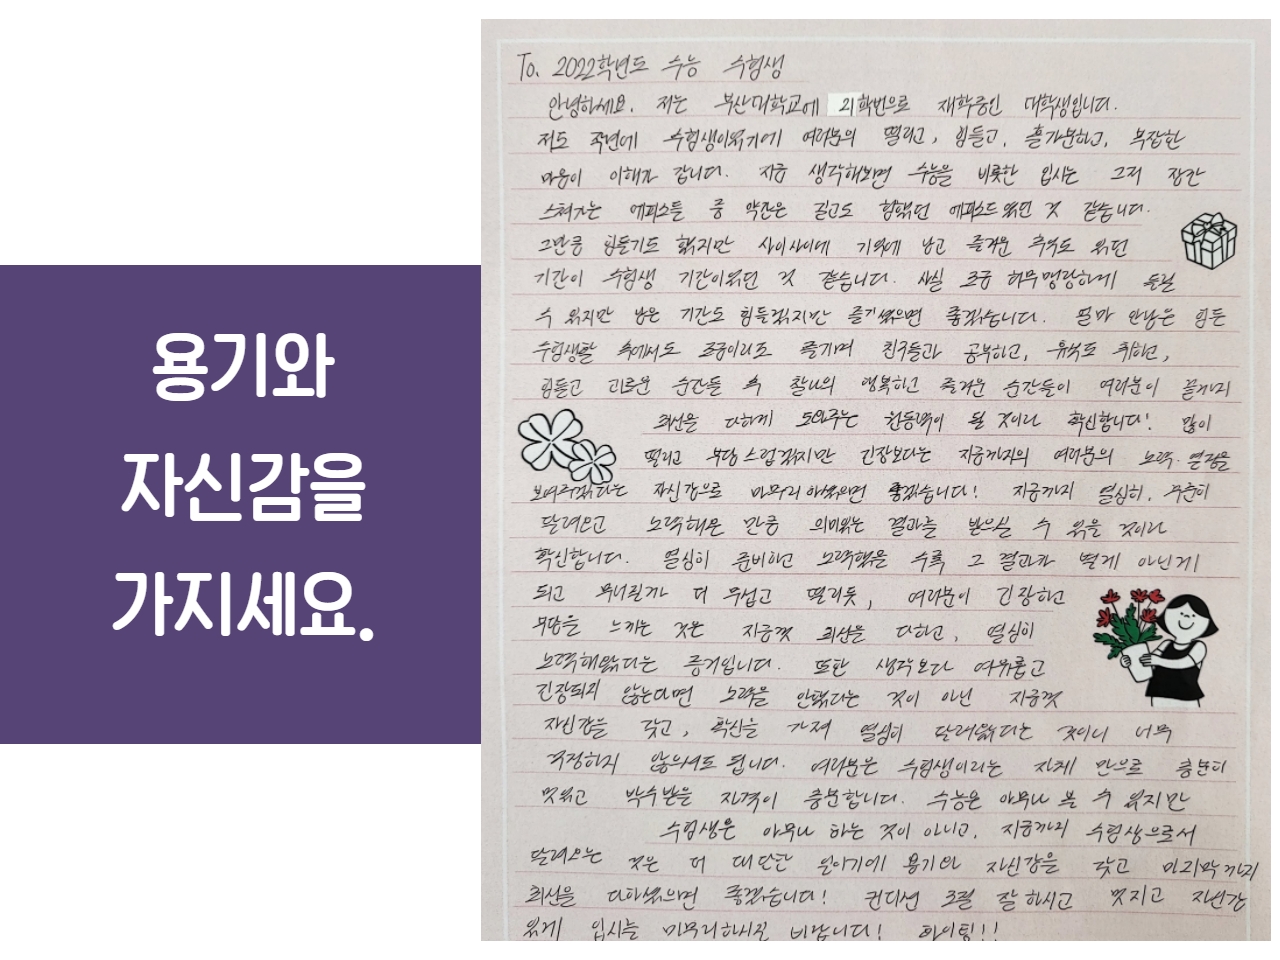 용기와
자신감을
가지세요.
To. 2022학년도 수능 수험생
안녕하세요. 저는 부산대학교에 21학번으로 재학중인 대학생입니다.
저도 작년에 수험생이었기에 여러분의 떨리고, 힘들고, 홀가분하고, 복잡한
마음이 이해가 갑니다. 지금 생각해보면 수능을 비롯한 입시는 그저 잠깐
스쳐가는 에피소들 중 약간은 길고도 험했던 에피소드였던 것 같습니다.
그만큼 힘들기도 했지만 사이사이에 기억에 남고 즐거운 추억도 있던
기간이 수험생 기간이었던 것 같습니다. 사실 조금 허무맹랑하게 들릴
수 있지만 남은 기간도 힘들겠지만 즐기셨으면 좋겠습니다. 얼마 안남은 힘든
수험생활 속에서도 조금이라도 즐기며 친구들과 공부하고, 휴식도 취하고,
힘들고 괴로운 순간들 속 찰나의 행복하고 즐거운 순간들이 여러분이 끝까지
최선을 다하게 도와주는 원동력이 될 것이라 확신합니다! 많이
떨리고 부담스럽겠지만 긴장보다는 지금까지의 여러분의 노력·열정을
보여주겠다는 자신감으로 마무리하셨으면 좋겠습니다! 지금까지 열심히, 꾸준히
달려오고 노력해온 만큼 의미있는 결과를 받으실 수 있을 것이라
확신합니다. 열심히 준비하고 노력했을 수록 그 결과가 별게 아닌게
되고 무너질까 더 무섭고 떨리듯, 여러분이 긴장하고
부담을 느끼는 것은 지금껏 최선을 다하고, 열심히
노력해왔다는 증거입니다. 또한 생각보다 여유롭고
긴장되지 않는다면 노력을 안했다는 것이 아닌 지금껏
자신감을 갖고, 확신을 가져 열심히 달려왔다는 것이니 너무
걱정하지 않으셔도 됩니다. 여러분은 수험생이라는 자체 만으로 충분히
멋있고 박수받을 자격이 충분합니다. 수능은 아무나 볼 수 있지만
수험생은 아무나 하는 것이 아니고, 지금까지 수험생으로서
달려오는 것은 더 대단한 일이기에 용기와 자신감을 갖고 마지막까지
최선을 다하셨으면 좋겠습니다! 컨디션 조절 잘 하시고 멋지고 자신감
있게 입시를 마무리하시길 바랍니다! 화이팅!!